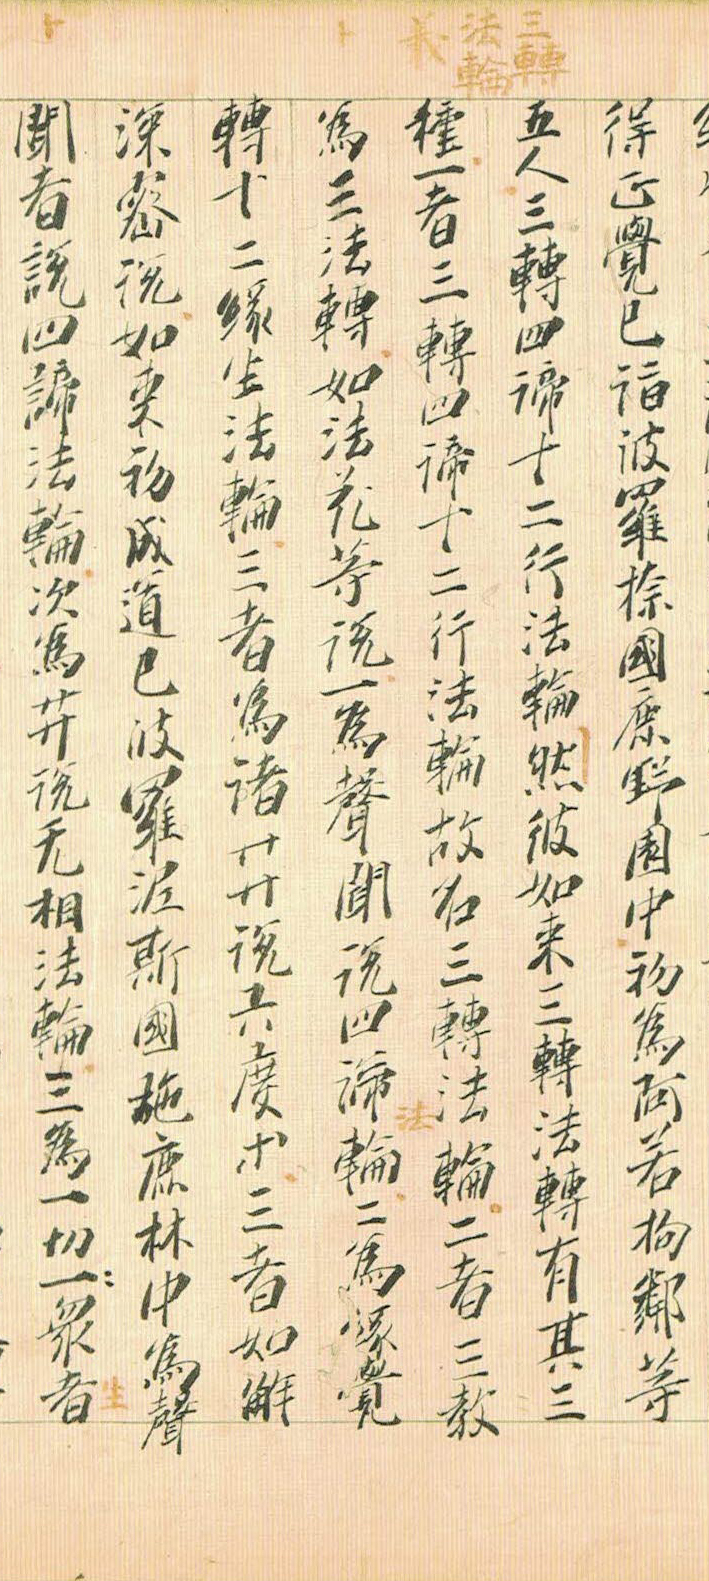 三轉
法輪
義
得正覺已詣波羅㮈國鹿野園中初為阿若拘鄰等
五人三轉四諦十二行法輪然彼如来三轉法轉有其三
種一者三轉四諦十二行法輪故名三轉法輪二者三教
法
為三法轉如法花等說一為聲聞說四諦輪二為緣覺
轉十二緣生法輪三者為諸廾說六度十三者如解
深密說如来初成道已波羅泥斯國施鹿林中為聲
聞者說四諦法輪次為廾說无相法輪三為一切一衆者
生